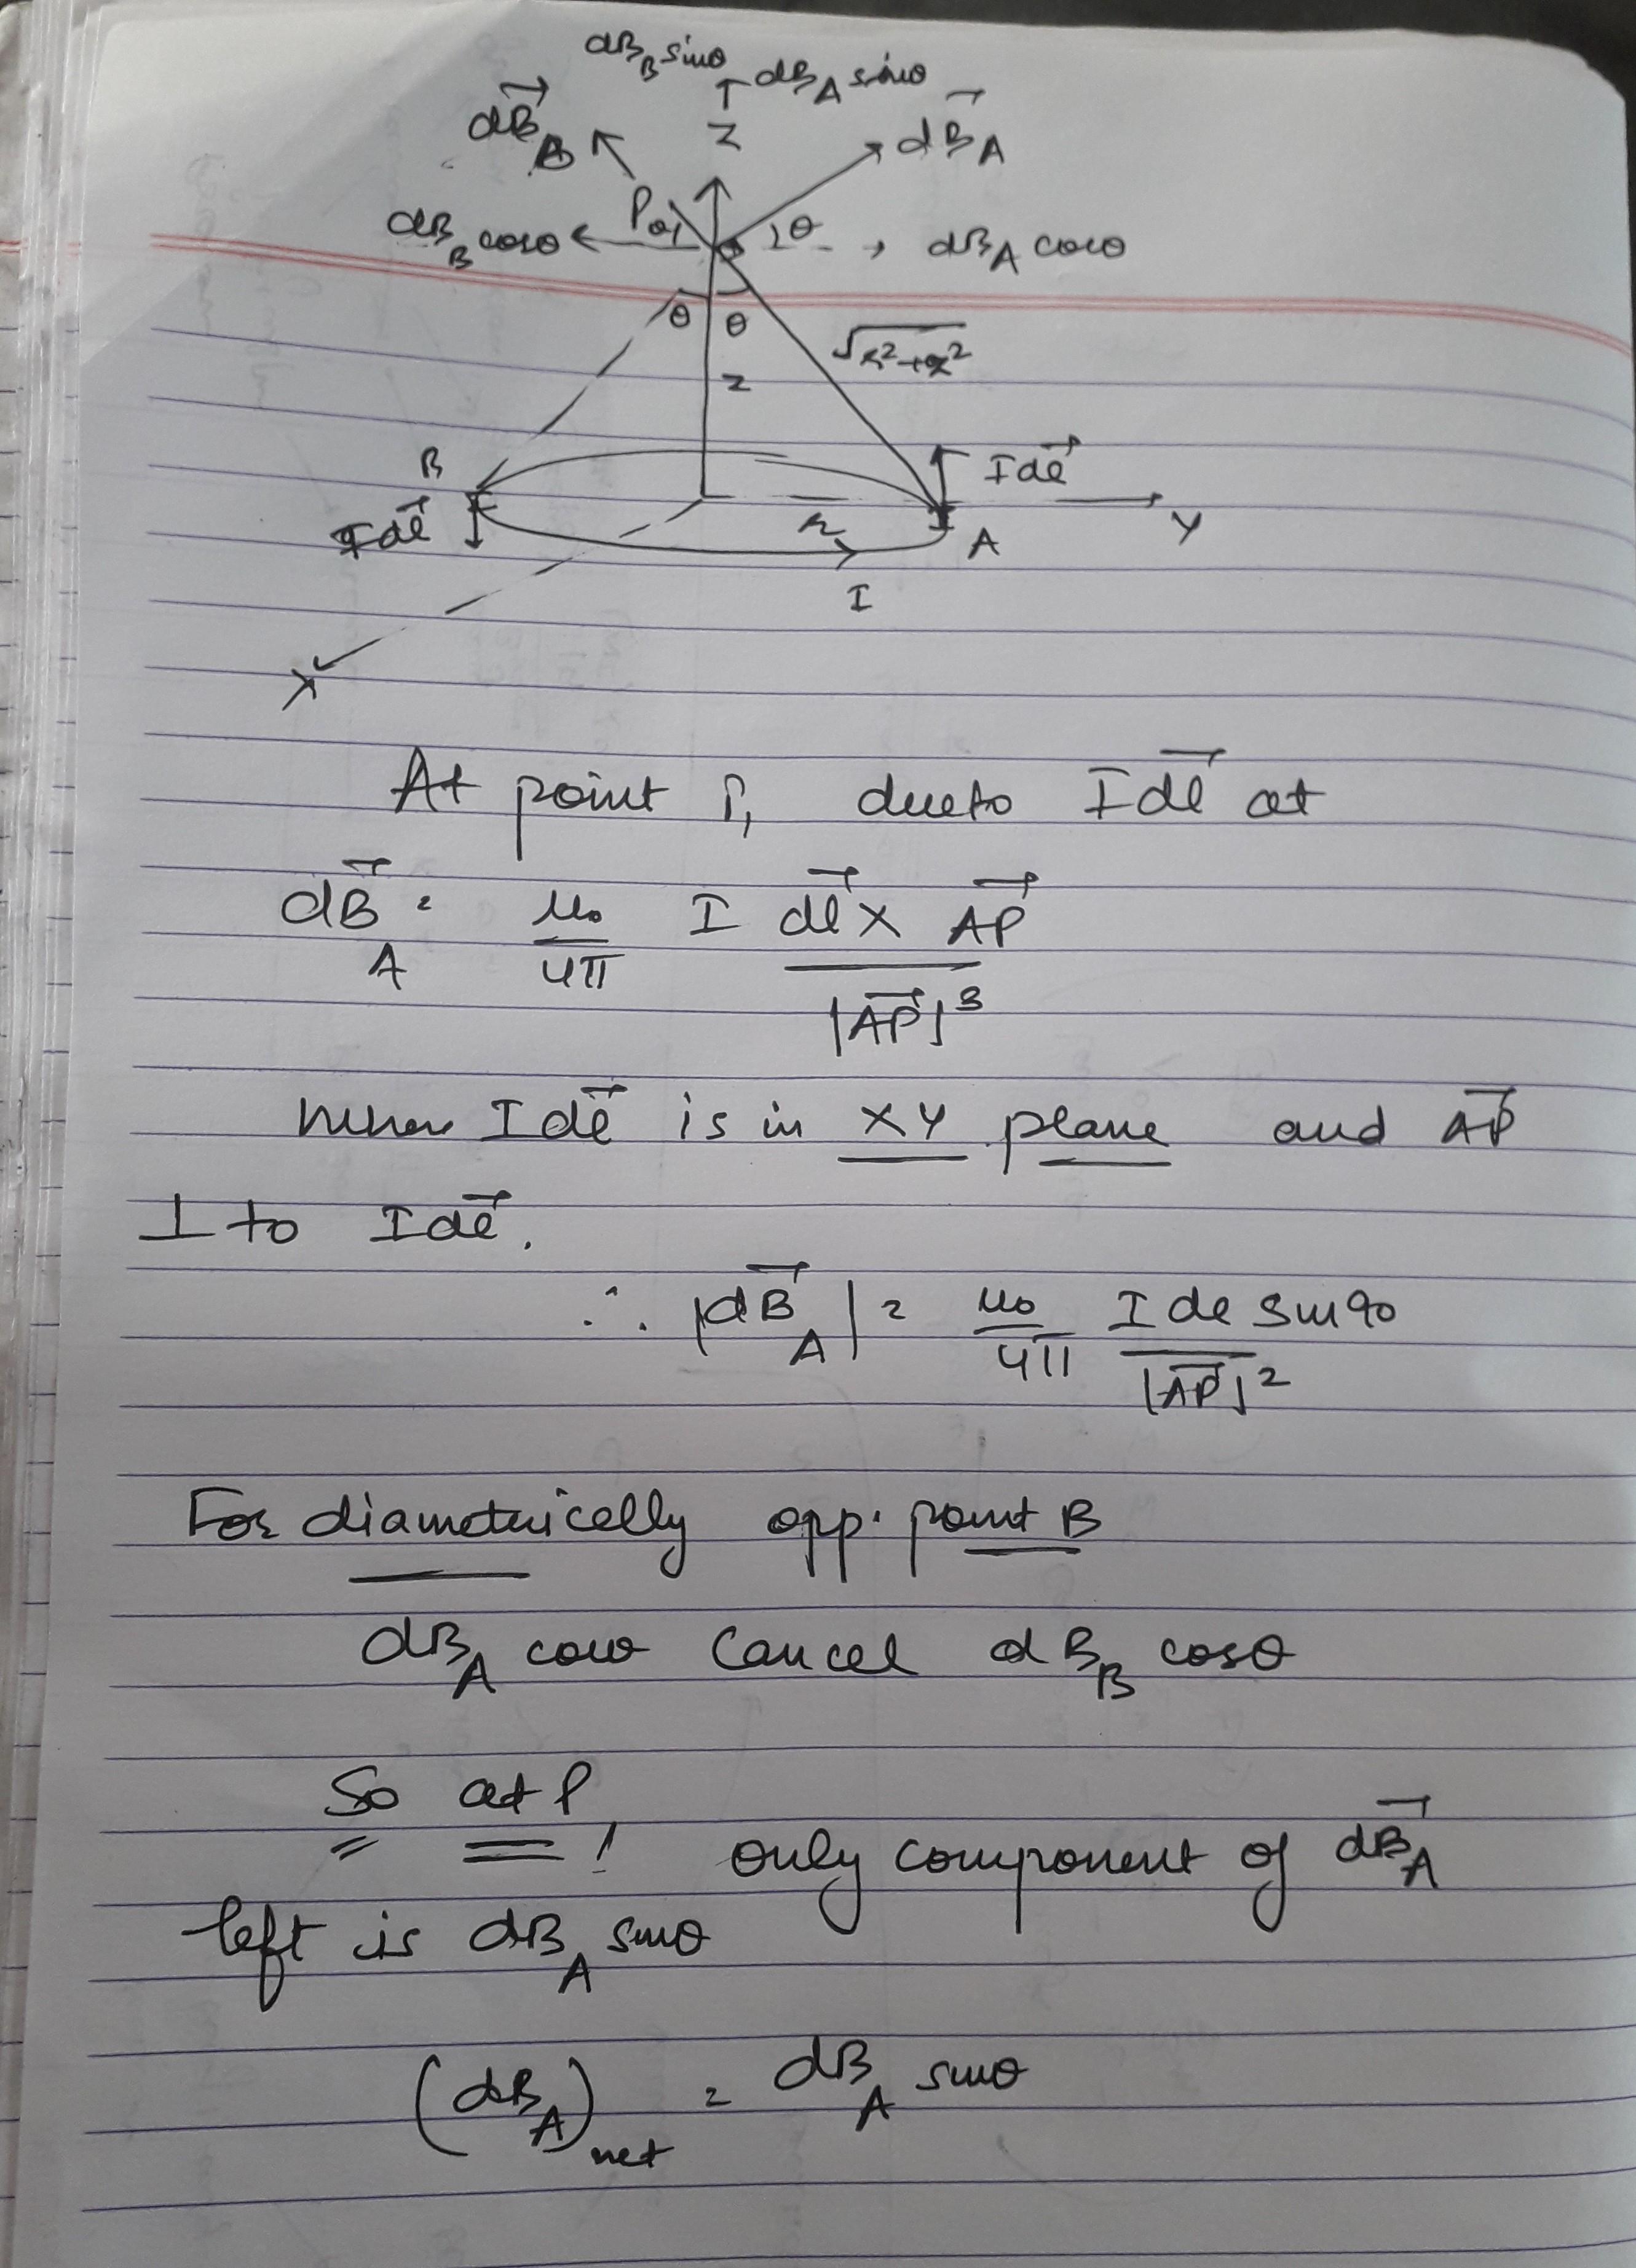 dB_B sinθ
↑ dB_A sinθ
dB⃗_B
Z
dB⃗_A
dB_B cosθ
P
θ
θ
dB_A cosθ
θ θ
√r²+z²
z
B
I dl⃗
I dl⃗
r
A
Y
I
X
At point P, due to I dl⃗ at
dB⃗_A = μ₀/4π I dl⃗ × AP⃗ / |AP⃗|³
when I dl⃗ is in XY plane and AP⃗
⊥ to I dl⃗.
∴ |dB⃗_A| = μ₀/4π I dl sin90 / |AP⃗|²
For diametrically opp. point B
dB_A cosθ cancel dB_B cosθ
So at P!
only component of dB⃗_A
left is dB_A sinθ
(dB_A)_net = dB_A sinθ